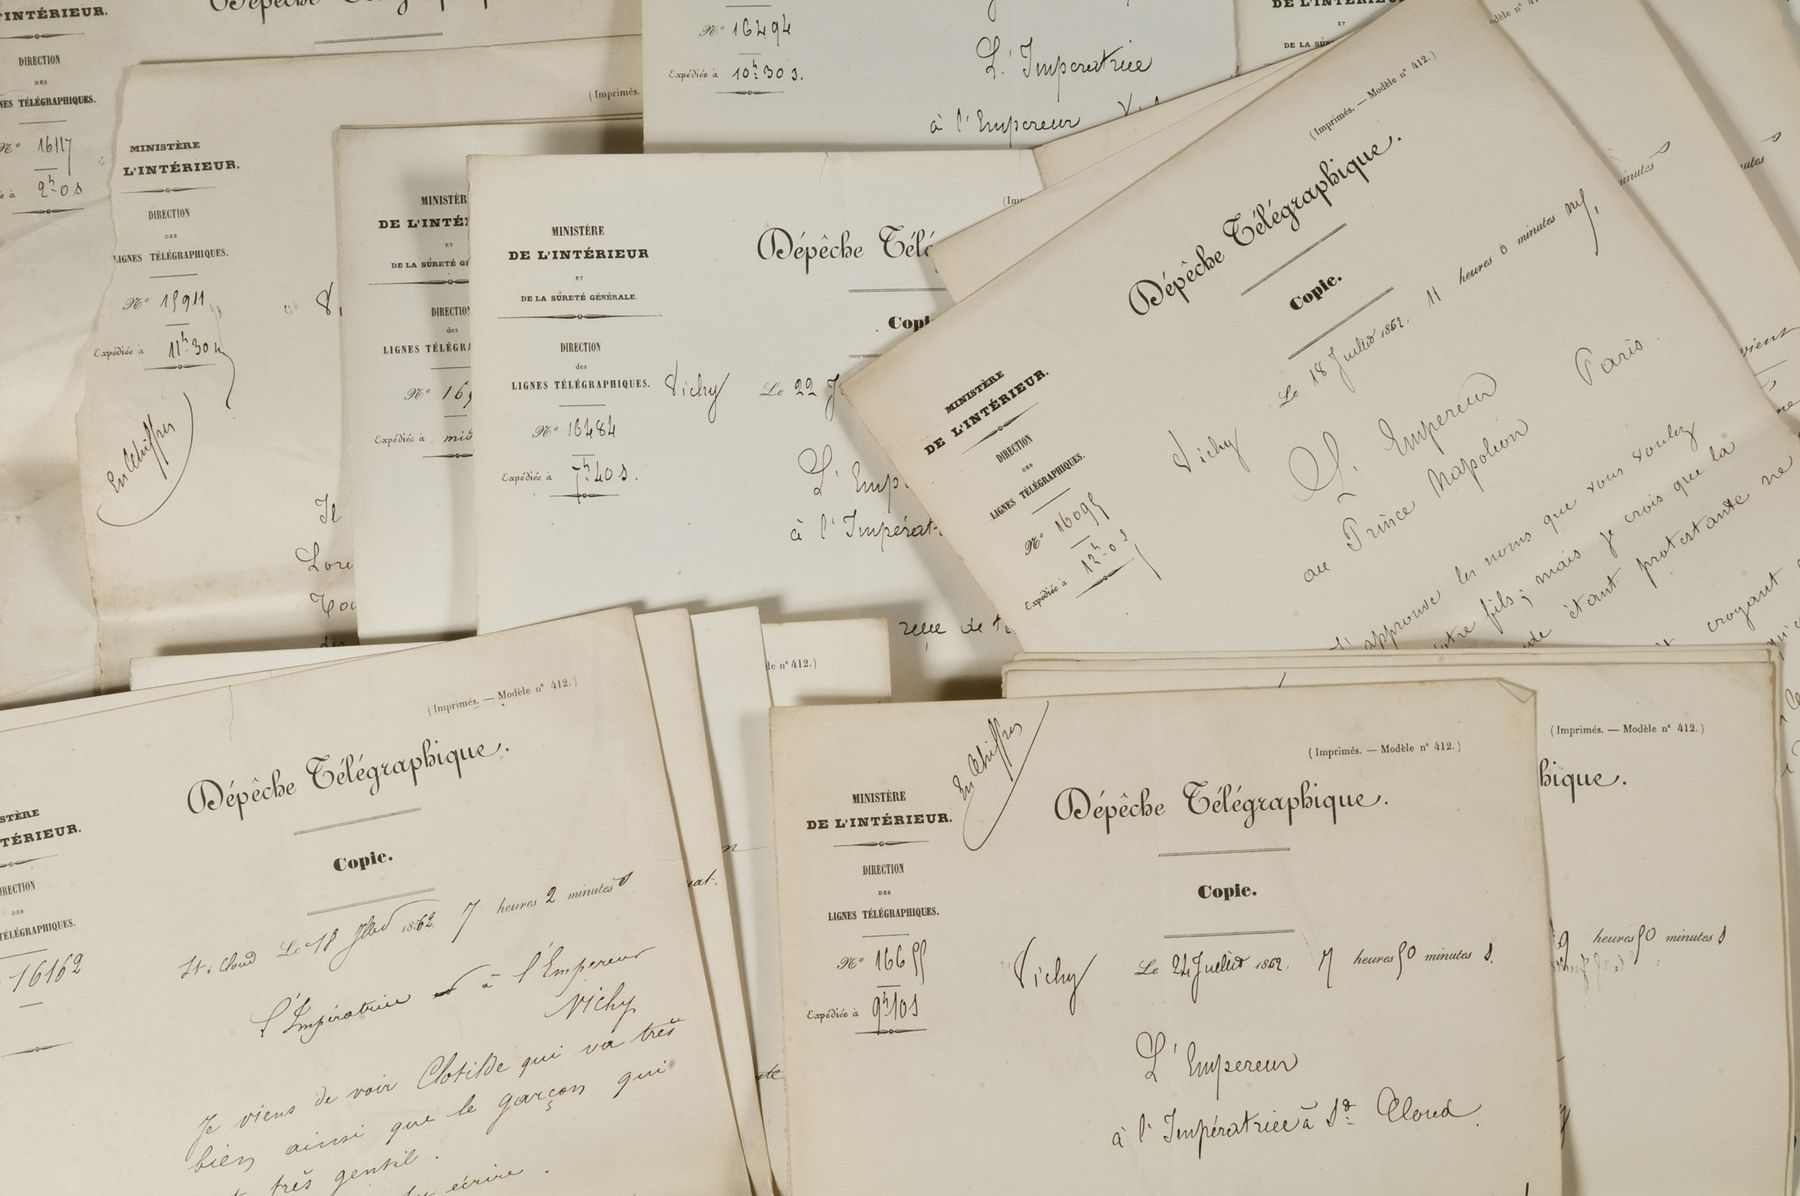 L'INTÉRIEUR.
DIRECTION
DES
LIGNES TÉLÉGRAPHIQUES.
N° 16117
2h 0 s
MINISTÈRE
L'INTÉRIEUR.
DIRECTION
DES
LIGNES TÉLÉGRAPHIQUES.
N° 15911
Expédiée à 11h 30
En Chiffres
(Imprimés.
Il
MINISTÈR
DE L'INTÉ
ET
DE LA SÛRETÉ GÉ
DIRECTION
des
LIGNES TÉLÉGRA
N°
Expédiée à
N° 16494
Expédiée à 10h 30 s.
L'Imperatrice
à l'Empereur
MINISTÈRE
DE L'INTÉRIEUR
ET
DE LA SÛRETÉ GÉNÉRALE.
DIRECTION
des
LIGNES TÉLÉGRAPHIQUES.
N° 16484
Expédiée à 7h 40 s.
Dépêche Télé
Copi
Vichy Le 22 J
L'Emp
à l'Impérat
(Imprimés. — Modèle n° 412.)
MINISTÈRE
DE L'INTÉRIEUR.
DIRECTION
DES
LIGNES TÉLÉGRAPHIQUES.
N° 16095
Expédiée à 12h 0 s
Dépêche Télégraphique.
Copie.
Vichy Le 18 Juillet 1862. 11 heures 0 minutes m.
L'Empereur
au Prince Napoléon Paris.
J'approuve les noms que vous voulez
votre fils ; mais je crois que la
étant protestante ne
croyant
minutes s
minutes s
(Imprimés. — Modèle n° 412.)
STÈRE
TÉRIEUR.
DIRECTION
DES
TÉLÉGRAPHIQUES.
16162
Dépêche Télégraphique.
Copie.
St. Cloud Le 18 Jllet 1862. 7 heures 2 minutes s
l'Impératrice à l'Empereur
Vichy
Je viens de voir Clotilde qui va très
bien ainsi que le garçon qui
très gentil.
écrire.
de n° 412.)
(Imprimés. — Modèle n° 412.)
En Chiffres
MINISTÈRE
DE L'INTÉRIEUR.
DIRECTION
DES
LIGNES TÉLÉGRAPHIQUES.
N° 16655
Expédiée à 9h 10 s
Dépêche Télégraphique.
Copie.
Vichy Le 24 Juillet 1862. 7 heures 50 minutes s.
L'Empereur
à l'Impératrice à St. Cloud.
(Imprimés. — Modèle n° 412.)
hique.
9 heures 50 minutes s